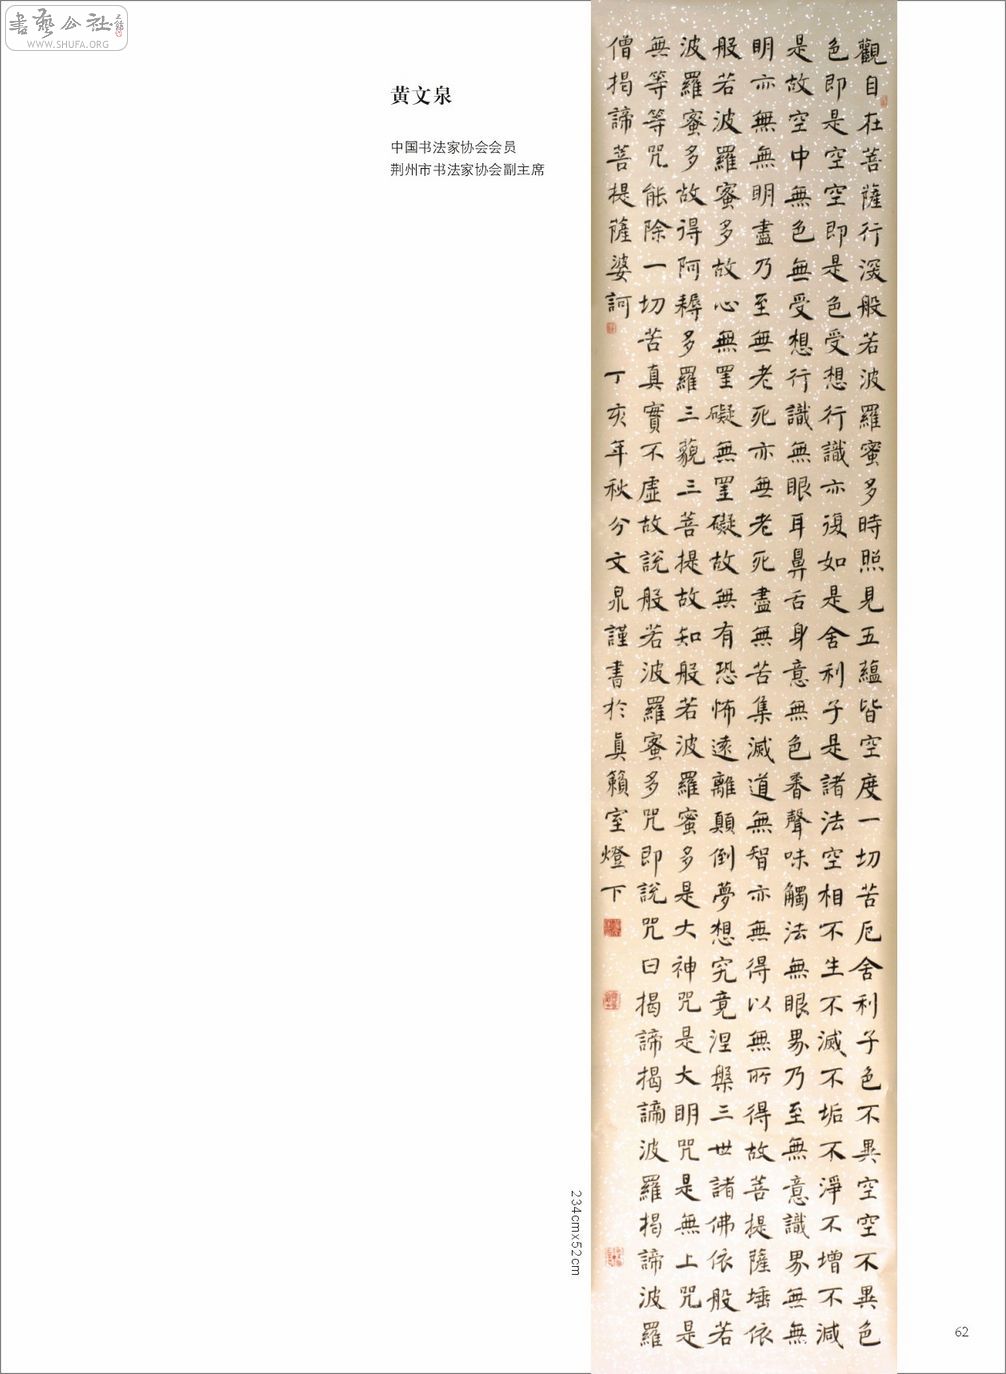 書藝公社
WWW.SHUFA.ORG
黄文泉
中国书法家协会会员
荆州市书法家协会副主席
觀自在菩薩行深般若波羅蜜多時照見五蘊皆空度一切苦厄舍利子色不異空空不異色
色即是空空即是色受想行識亦復如是舍利子是諸法空相不生不滅不垢不淨不增不減
是故空中無色無受想行識無眼耳鼻舌身意無色香聲味觸法無眼界乃至無意識界無無
明亦無無明盡乃至無老死亦無老死盡無苦集滅道無智亦無得以無所得故菩提薩埵依
般若波羅蜜多故心無罣礙無罣礙故無有恐怖遠離顛倒夢想究竟涅槃三世諸佛依般若
波羅蜜多故得阿耨多羅三藐三菩提故知般若波羅蜜多是大神咒是大明咒是無上咒是
無等等咒能除一切苦真實不虛故說般若波羅蜜多咒即說咒曰揭諦揭諦波羅揭諦波羅
僧揭諦菩提薩婆訶 丁亥年秋分文泉謹書於眞籟室燈下
234cmx52cm
62